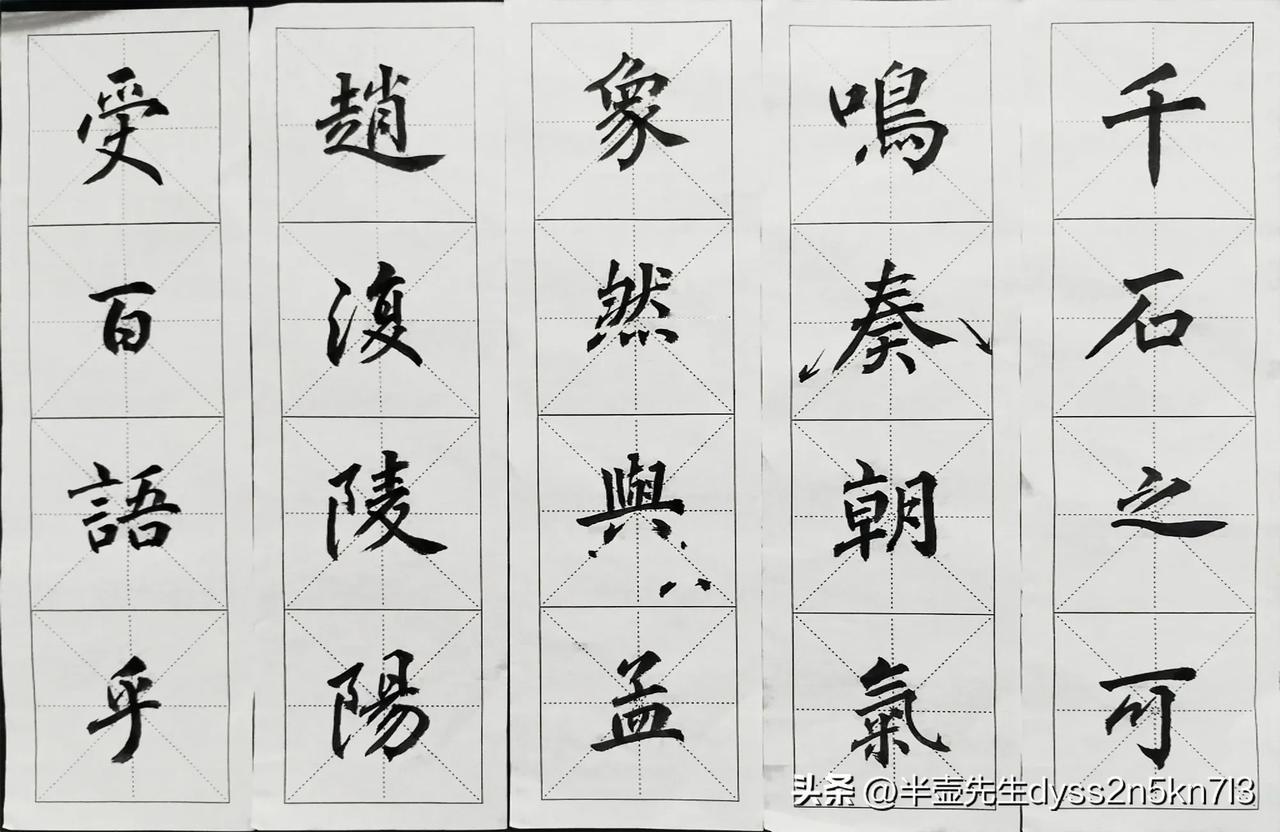 千石之可
鳴奏朝氣
象然與孟
趙復陵陽
受百語乎
头条 @半壶先生dyss2n5kn7l3